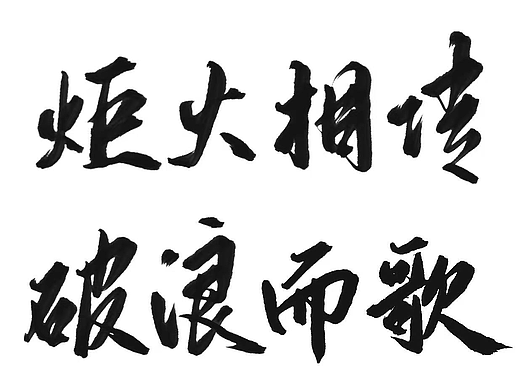 炬火相传
破浪而歌